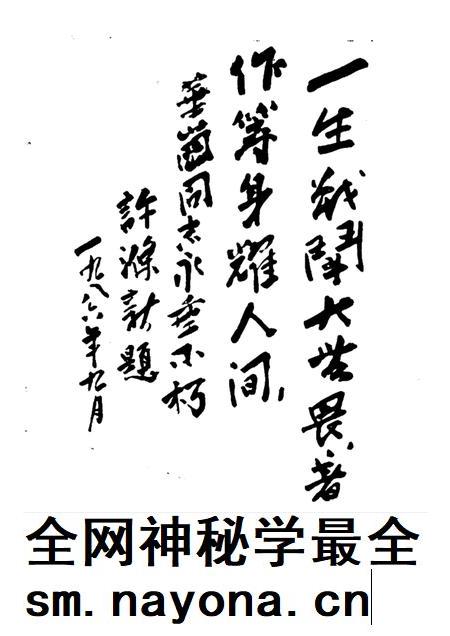 一生战鬪大无畏，著
作等身耀人间，
華崗同志永垂不朽
許滌新題
一九八六年九月
全网神秘学最全
sm.nayona.cn